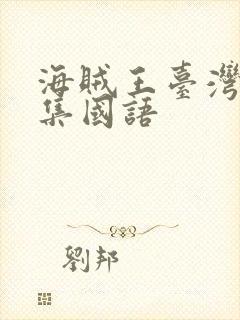 海賊王臺灣
集國語
劉邦